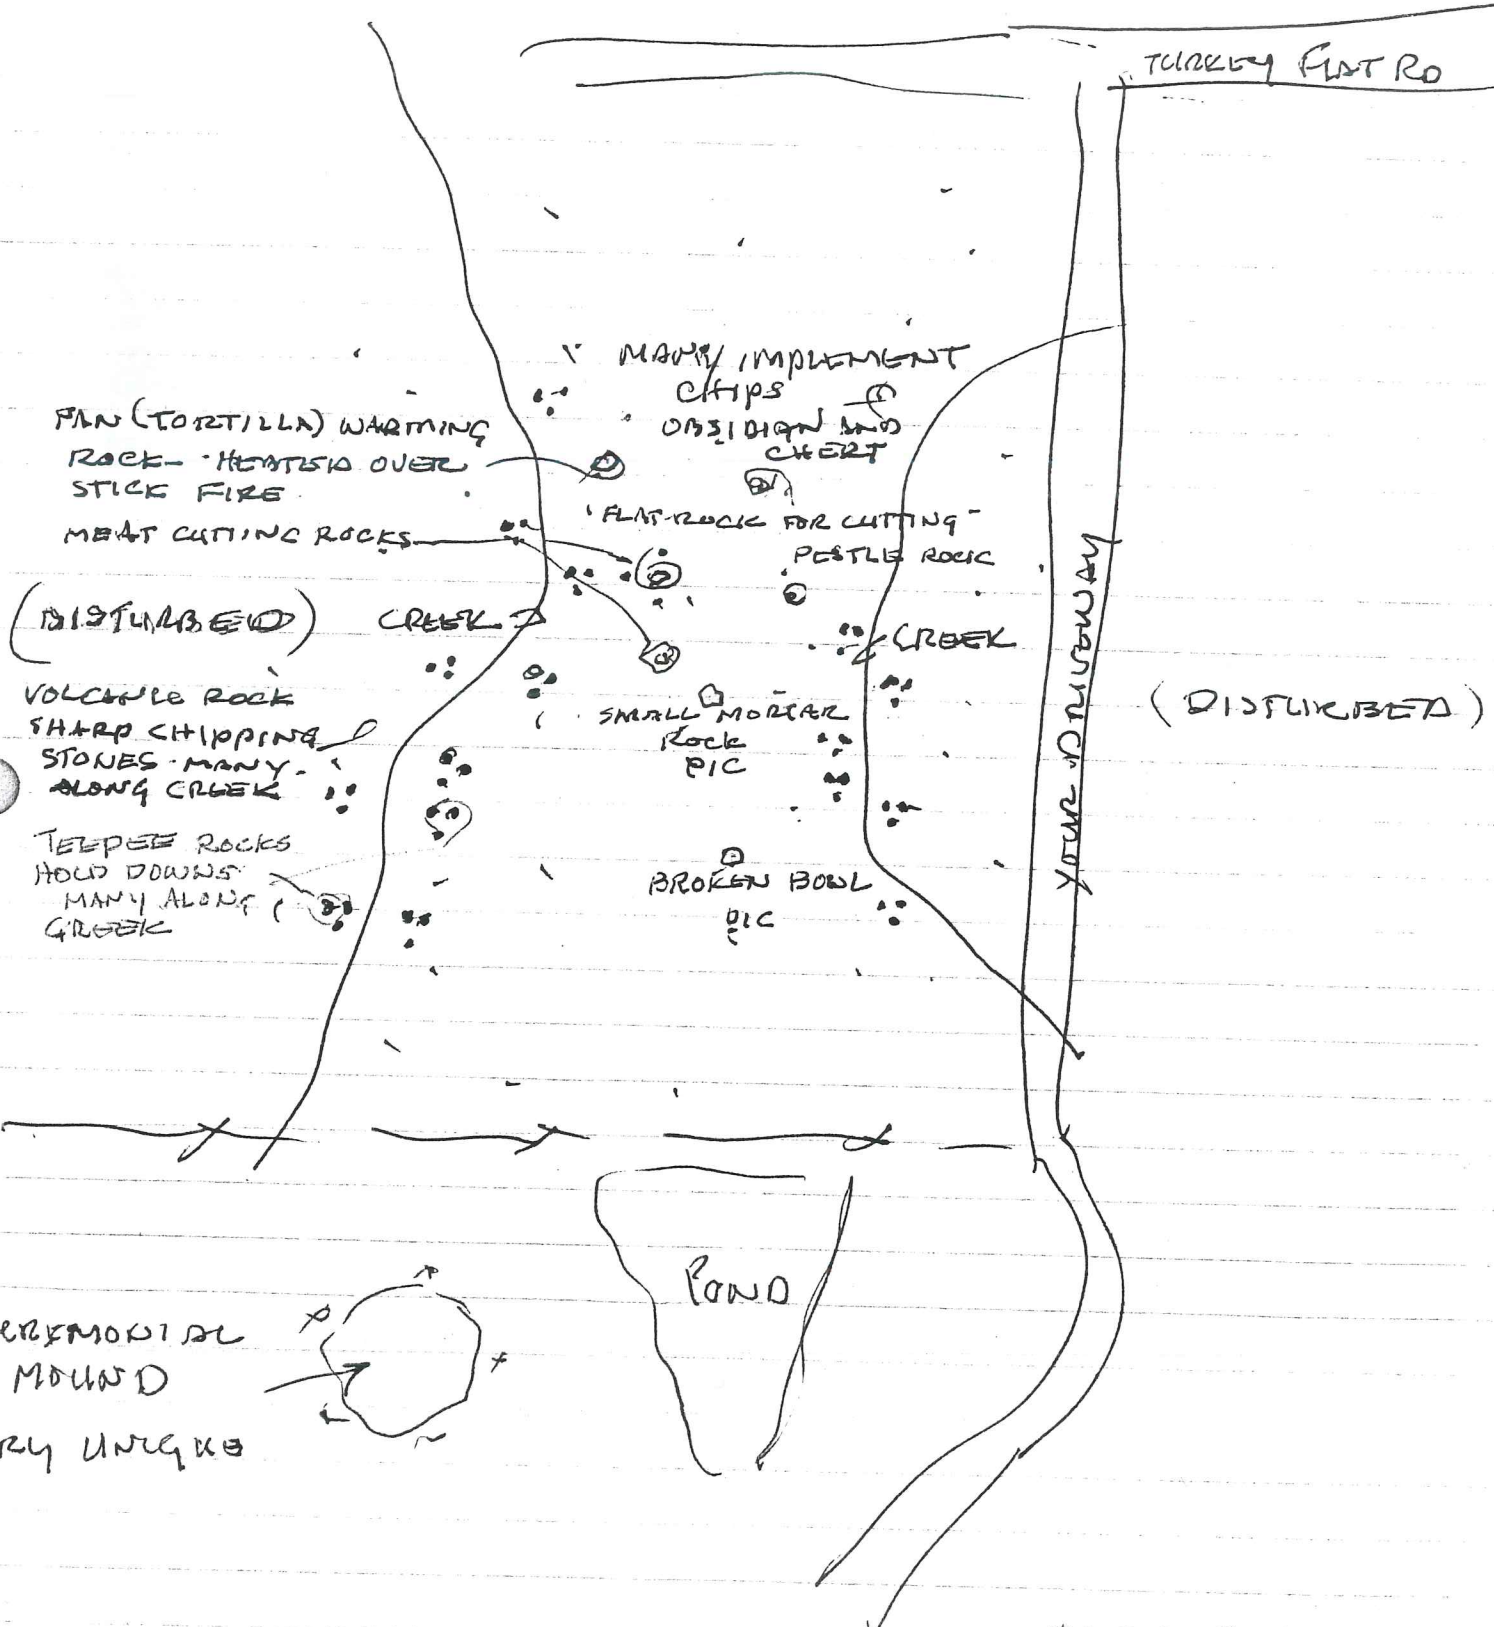 TURKEY FLAT RD
MANY IMPLEMENT
CHIPS
OBSIDIAN AND
CHERT
PAN (TORTILLA) WARMING
ROCK - HEATED OVER
STICK FIRE
FLAT ROCK FOR CUTTING
MEAT CUTTING ROCKS
PESTLE ROCK
(DISTURBED)
CREEK
CREEK
YOUR DRIVEWAY
(DISTURBED)
VOLCANIC ROCK
SHARP CHIPPING
STONES - MANY
ALONG CREEK
SMALL MORTAR
ROCK
PIC
TEEPEE ROCKS
HOLD DOWNS
MANY ALONG
CREEK
BROKEN BOWL
PIC
POND
EREMONIAL
MOUND
RY UNIQUE